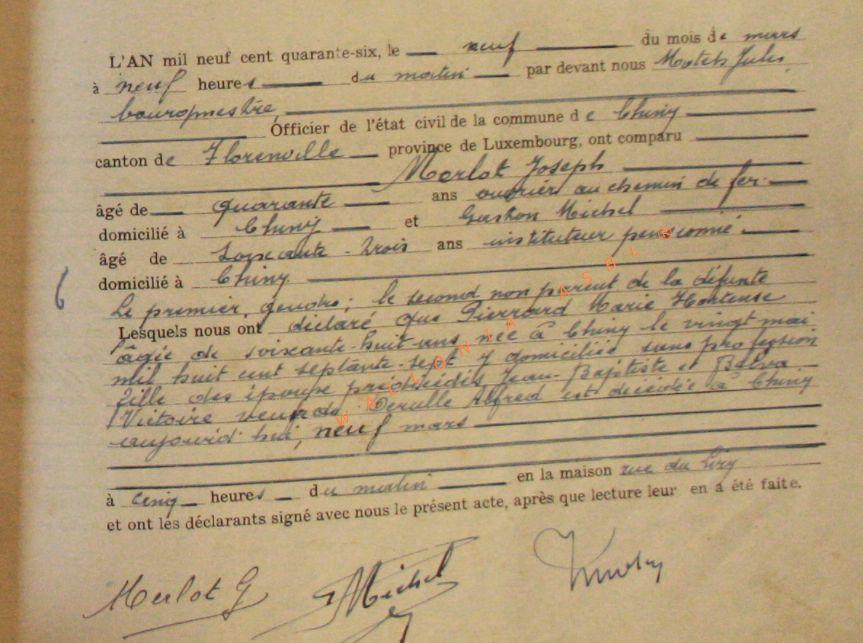 L'AN mil neuf cent quarante-six, le neuf du mois de mars
à neuf heures du matin par devant nous Jules,
bourgmestre,
Officier de l'état civil de la commune de Chiny
canton de Florenville province de Luxembourg, ont comparu
Merlot Joseph
âgé de quarante ans ouvrier au chemin de fer
domicilié à Chiny et Gaston Michel
âgé de soixante-trois ans instituteur pensionné
domicilié à Chiny
Le premier, gendre; le second non parent de la défunte
Lesquels nous ont déclaré que Pierrard Marie Hortense
âgée de soixante-huit ans née à Chiny le vingt mai
mil huit cent septante-sept y domiciliée sans profession
fille des époux Jean-Baptiste et
Victoire veuve de Alfred est décédée à Chiny
aujourd'hui, neuf mars
à cinq heures du matin en la maison rue du
et ont les déclarants signé avec nous le présent acte, après que lecture leur en a été faite.
Merlot G Michel